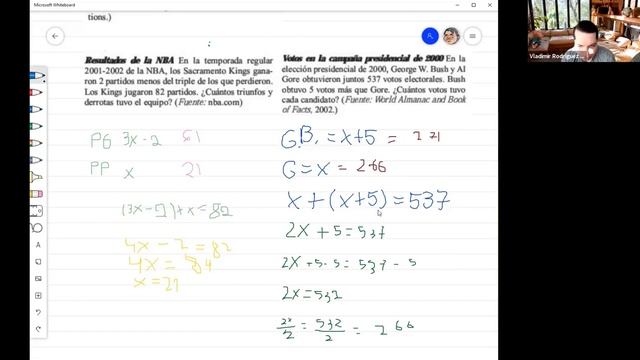 Microsoft Whiteboard
tions.)
Resultados de la NBA En la temporada regular
2001-2002 de la NBA, los Sacramento Kings gana-
ron 2 partidos menos del triple de los que perdieron.
Los Kings jugaron 82 partidos. ¿Cuántos triunfos y
derrotas tuvo el equipo? (Fuente: nba.com)
PG 3x-2 61
PP x 21
(3x-2)+x=82
4x-2=82
4x=84
x=21
Votos en la campaña presidencial de 2000 En la
elección presidencial de 2000, George W. Bush y Al
Gore obtuvieron juntos 537 votos electorales. Bush
obtuvo 5 votos más que Gore. ¿Cuántos votos tuvo
cada candidato? (Fuente: World Almanac and Book
of Facts, 2002.)
G.B. = x+5 = 271
G = x = 266
x+(x+5)=537
2x+5=537
2x+5-5=537-5
2x=532
2x/2=532/2=266
Vladimir Rodriguez